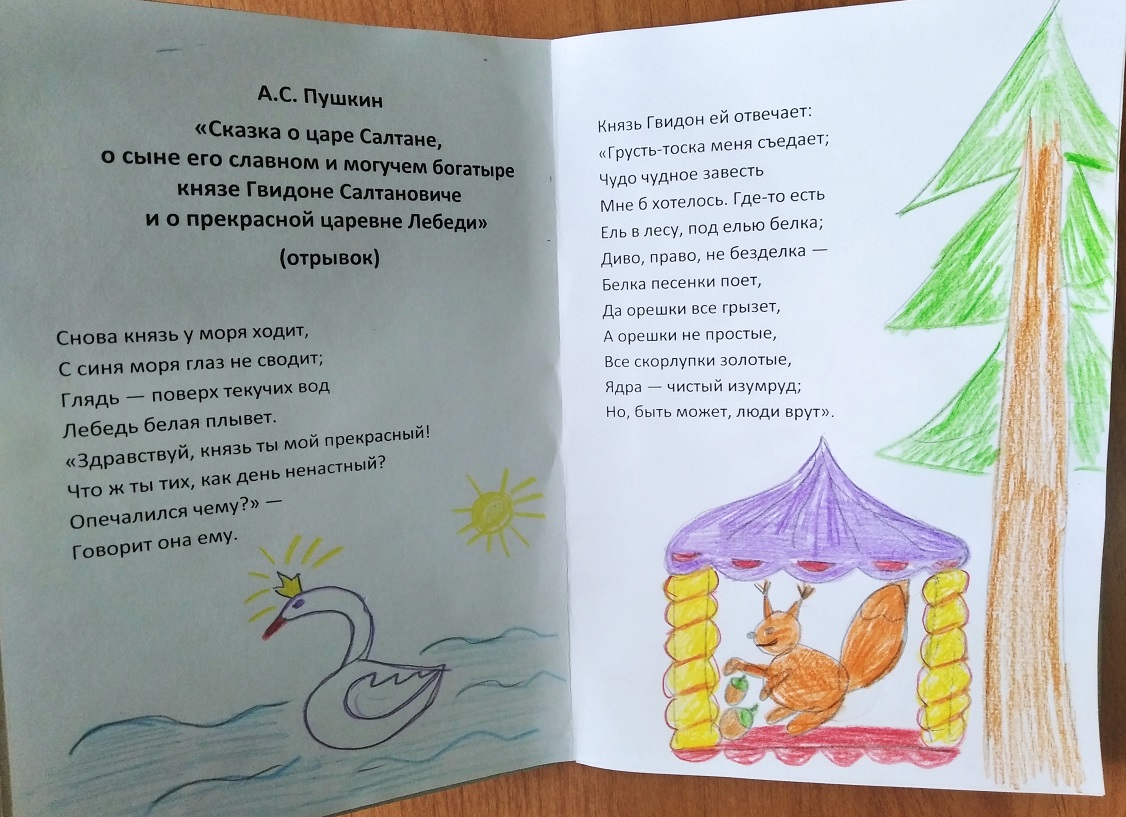 А.С. Пушкин
«Сказка о царе Салтане,
о сыне его славном и могучем богатыре
князе Гвидоне Салтановиче
и о прекрасной царевне Лебеди»
(отрывок)
Снова князь у моря ходит,
С синя моря глаз не сводит;
Глядь — поверх текучих вод
Лебедь белая плывет.
«Здравствуй, князь ты мой прекрасный!
Что ж ты тих, как день ненастный?
Опечалился чему?» —
Говорит она ему.
Князь Гвидон ей отвечает:
«Грусть-тоска меня съедает;
Чудо чудное завесть
Мне б хотелось. Где-то есть
Ель в лесу, под елью белка;
Диво, право, не безделка —
Белка песенки поет,
Да орешки все грызет,
А орешки не простые,
Все скорлупки золотые,
Ядра — чистый изумруд;
Но, быть может, люди врут».